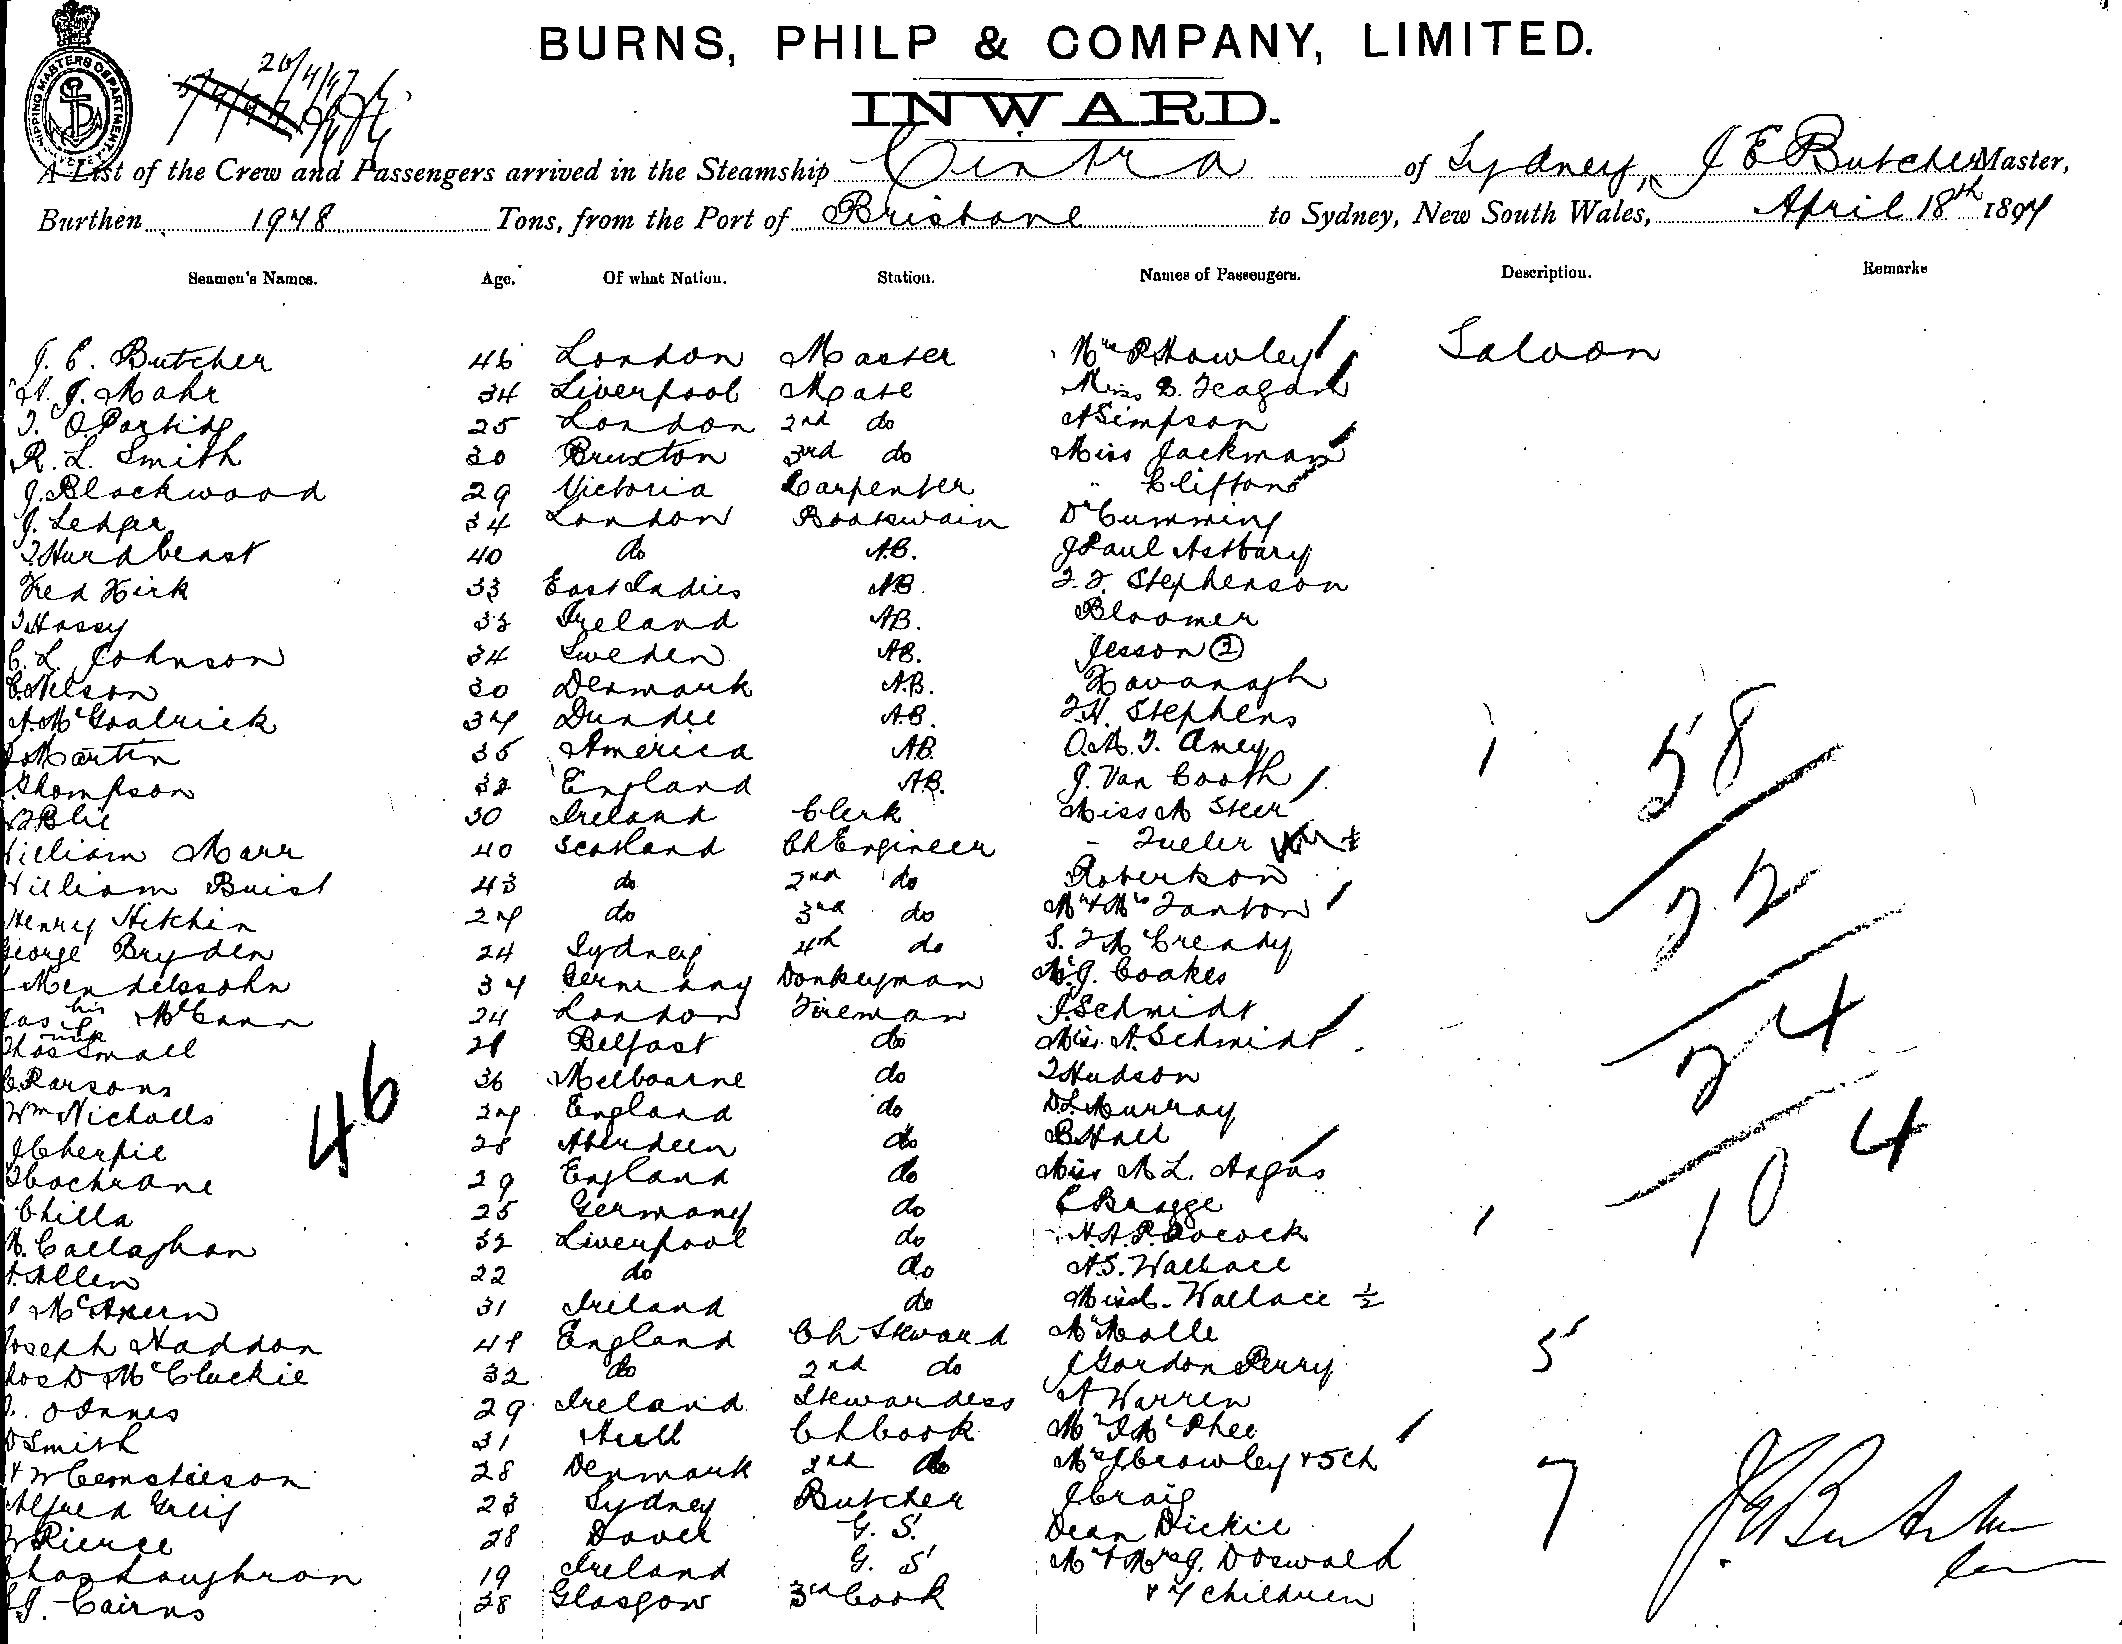 BURNS, PHILP & COMPANY, LIMITED.
INWARD.
SHIPPING MASTERS DEPARTMENT
26/4/97
A List of the Crew and Passengers arrived in the Steamship Cintra of Sydney, J E Butcher Master,
Burthen 1948 Tons, from the Port of Brisbane to Sydney, New South Wales, April 18th 1897
Seamen's Names. Age. Of what Nation. Station. Names of Passengers. Description. Remarks
J. E. Butcher 46 London Master Saloon
H. J. Mahr 34 Liverpool Mate Miss B. Feagan
25 London 2nd do A Simpson
R. L. Smith 30 Bruxton 3rd do Miss Jackman
J. Blackwood 29 Victoria Carpenter " Clifton
J. Ledger 34 London Boatswain Dr Cumming
40 do A.B. J Paul Astbury
Fred Kirk 33 East Indies AB. F. F. Stephenson
33 Ireland AB. Bloomer
C. L. Johnson 34 Sweden AB. Jesson 2
C. Nelson 30 Denmark A.B. Kavanagh
A. McGoalrick 37 Dundee A.B. F.H. Stephens
Martin 35 America AB. O.M.F. Amey 1
Thompson 32 England AB. J. Van Cooth
30 Ireland Clerk Miss M Steer
William Marr 40 Scotland Ch Engineer - Fueler
William Buist 43 do 2nd do Robertson
Henry Hitchin 27 do 3rd do Mr & Mrs Fanton
George Bryden 24 Sydney 4th do S. F McCready
Mendelssohn 37 Germany Donkeyman G. Coakes
Jas his mark McCann 24 London Fireman J. Schmidt
Thos Small 21 Belfast do Miss A. Schmidt
C Parsons 36 Melbourne do F Hudson
Wm Nicholls 27 England do D. L. Murray
J Cherpie 28 Aberdeen do B Hall
Cochrane 29 England do Miss M L. Angus
Chilla 25 Germany do E Bragge
Callaghan 32 Liverpool do H.A.P. Pocock
Allen 22 do do A.S. Wallace
McAnern 31 Ireland do Miss C. Wallace ½
Joseph Haddon 41 England Ch Steward McMolle 5
D McCluckie 32 do 2nd do J Gordon Perry
O Innes 29 Ireland Stewardess A Warren
D Smith 31 Hull Ch Cook Mr J McPhee
28 Denmark 2nd do Mrs J Crowley & 5 ch 7
Alfred Greig 23 Sydney Butcher J Craig
W Pierce 28 Dover G. S. Dean Dickie
Chas Loughran 19 Ireland G. S Mr & Mrs J. D Oswald
J. Cairns 28 Glasgow 3rd Cook & 7 Children
46
58
22
24
10 4
J E Butcher